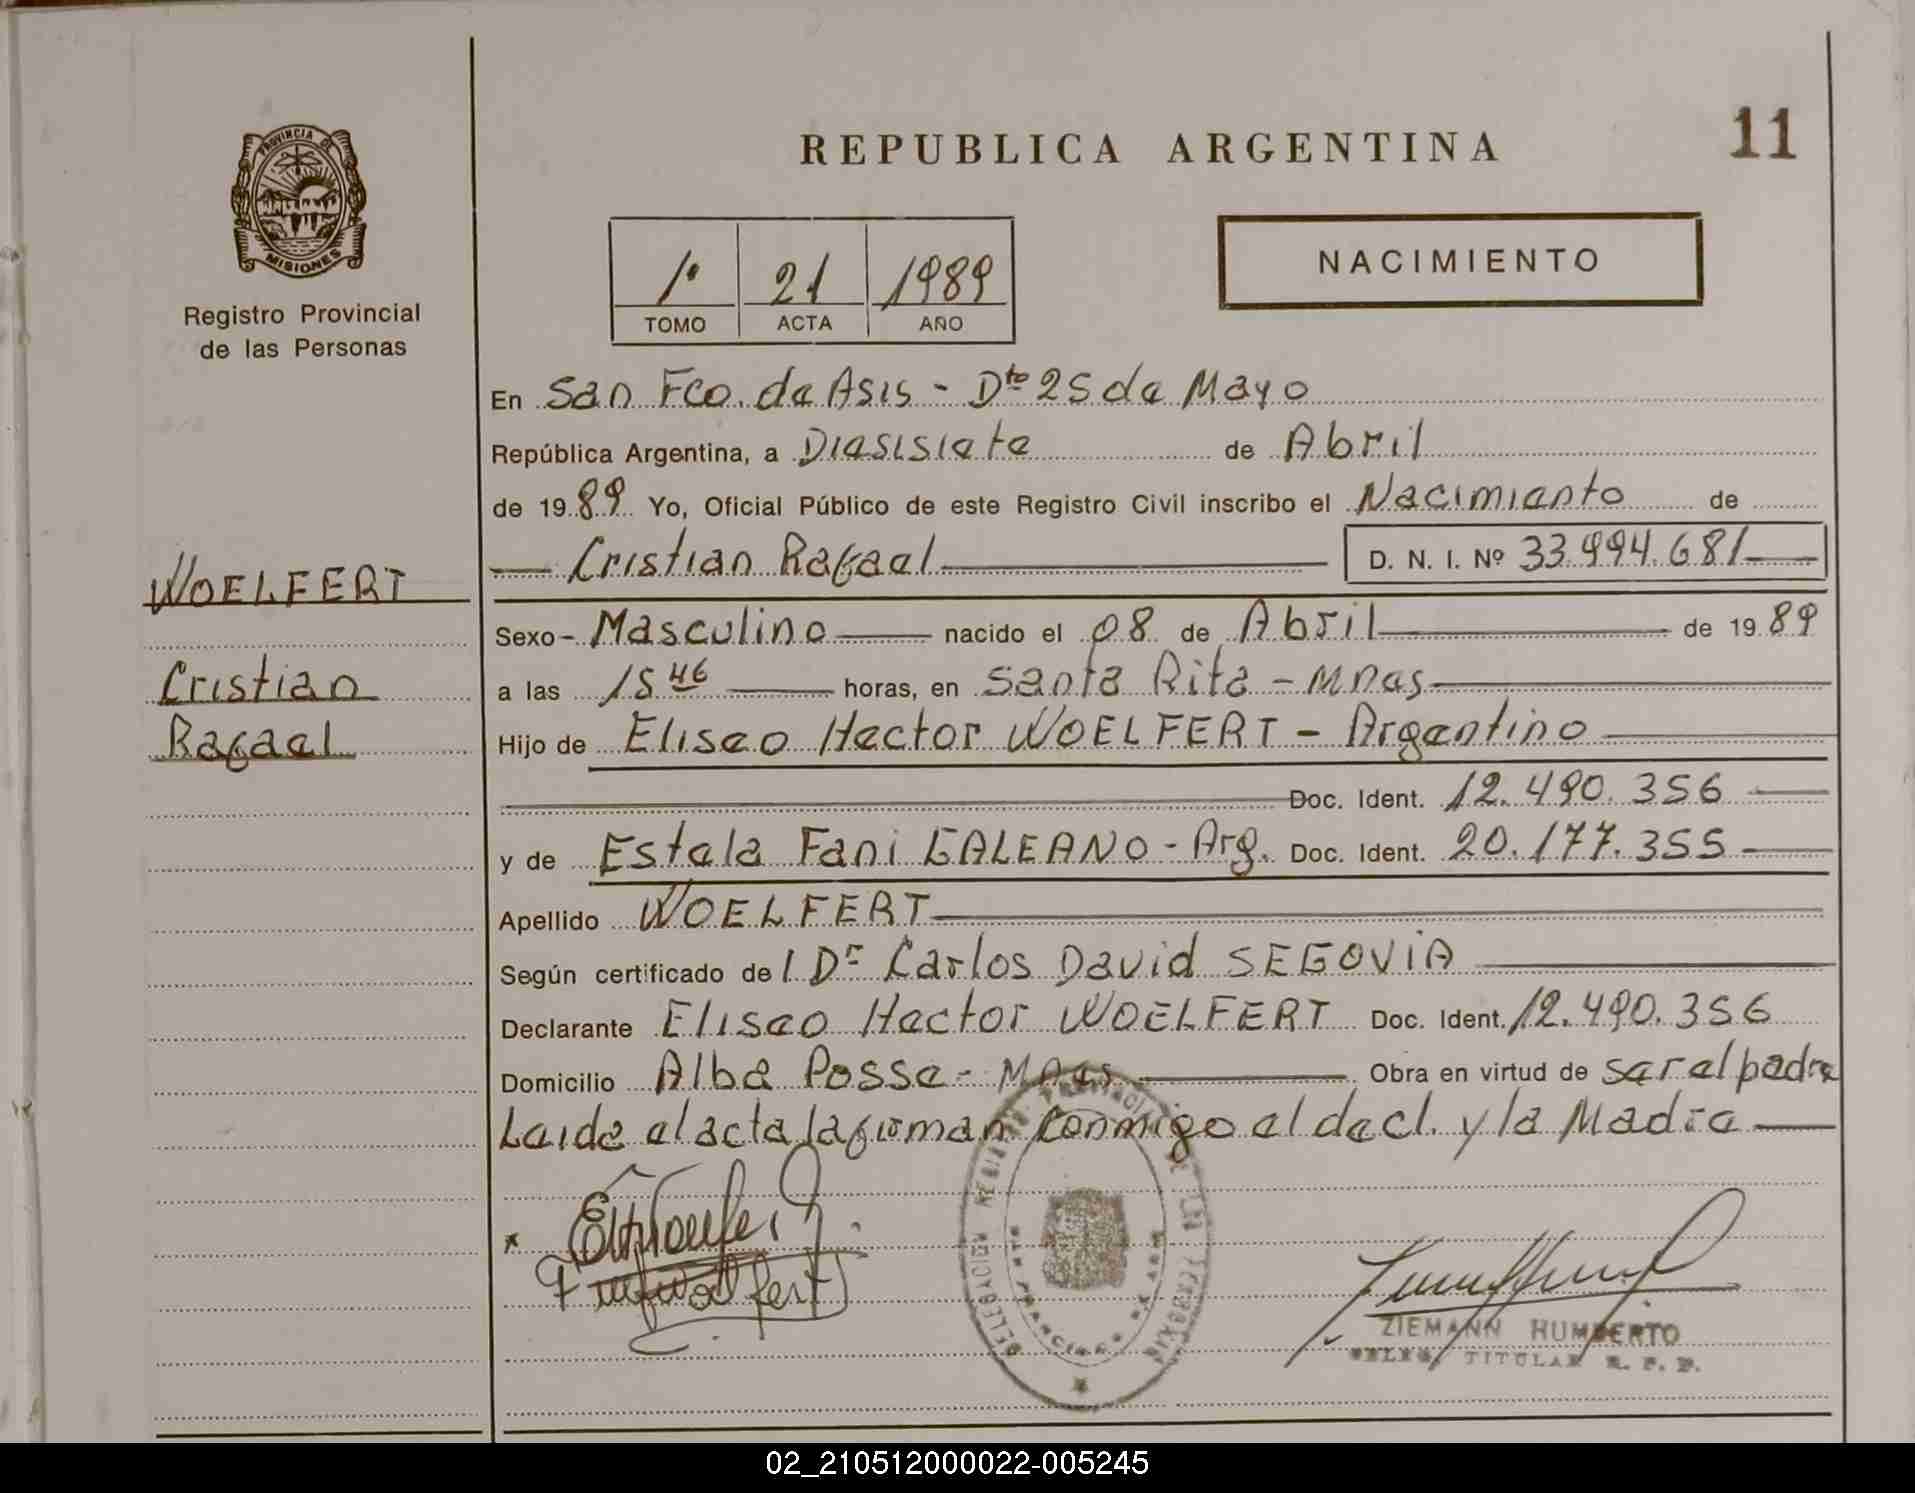 PROVINCIA DE
MISIONES
Registro Provincial
de las Personas
WOELFERT
Cristian
Rafael
REPUBLICA ARGENTINA
11
1º 21 1989
TOMO ACTA AÑO
NACIMIENTO
En San Fco. de Asis - Dto 25 de Mayo
República Argentina, a Diesisiete de Abril
de 1989 Yo, Oficial Público de este Registro Civil inscribo el Nacimiento de
Cristian Rafael D. N. I. Nº 33.994.681
Sexo- Masculino nacido el 08 de Abril de 1989
a las 15 46 horas, en Santa Rita - Mnes
Hijo de Eliseo Hector WOELFERT - Argentino
Doc. Ident. 12.490.356
y de Estela Fani GALEANO - Arg. Doc. Ident. 20.177.355
Apellido WOELFERT
Según certificado del Dr Carlos David SEGOVIA
Declarante Eliseo Hector WOELFERT Doc. Ident. 12.490.356
Domicilio Alba Posse - Mnes Obra en virtud de ser el padre
Leida el acta la firman conmigo el decl. y la Madre
ZIEMANN HUMBERTO
TITULAR R. P. P.
02_210512000022-005245